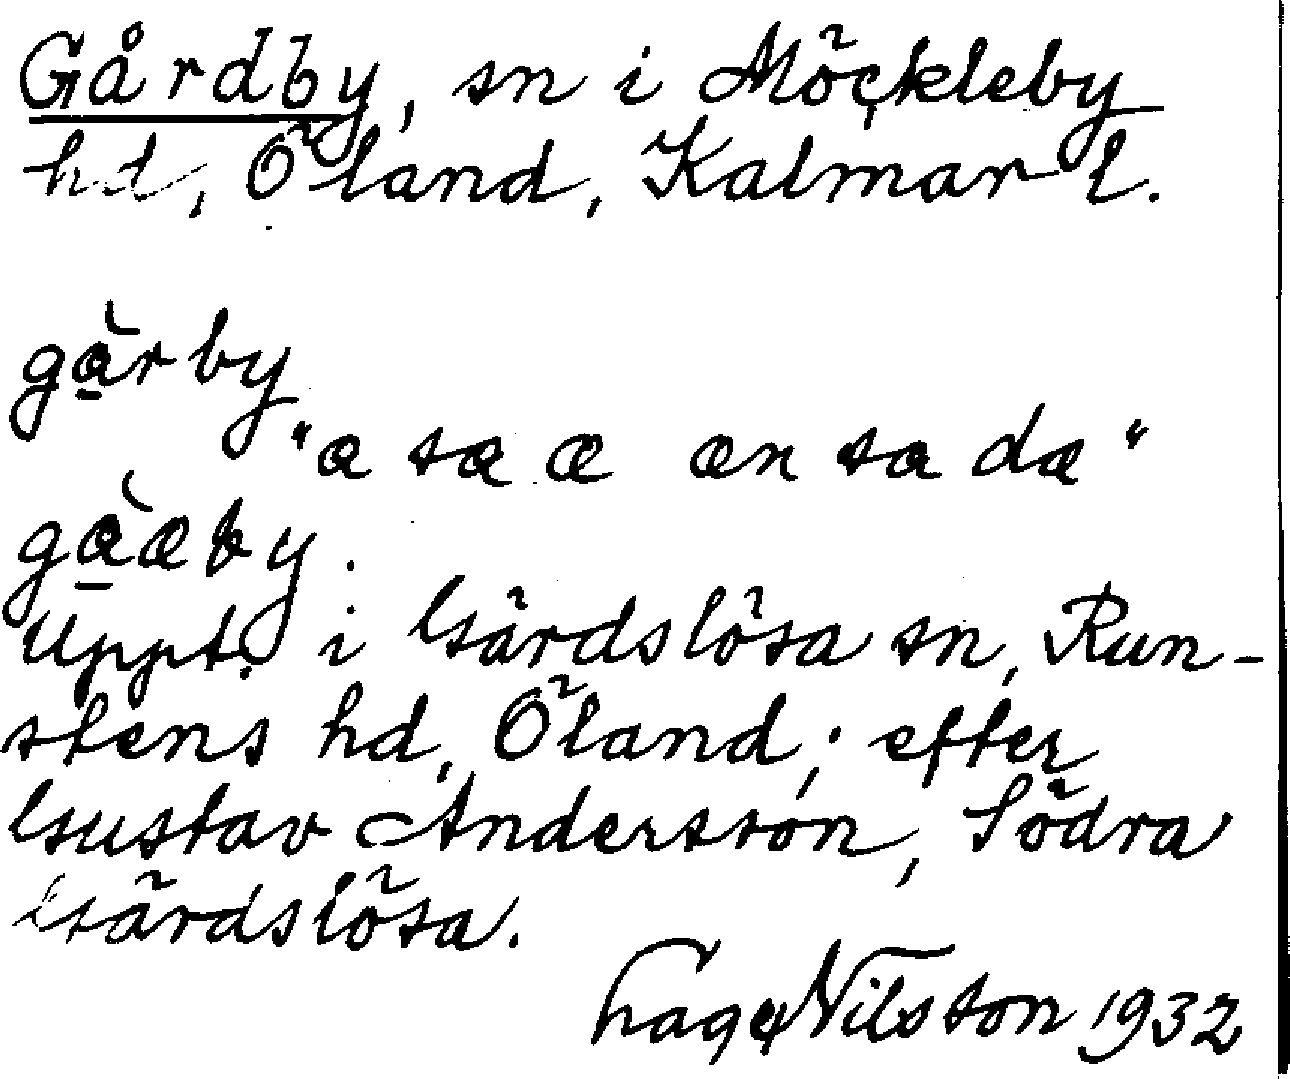 Gårdby, sn i Möckleby
hd, Öland, Kalmar l.
gàrby
"a sæ æ æn sa da"
gàæby.
Uppt. i Gärdslösa sn, Run-
stens hd, Öland; efter
Gustav Andersson, Södra
Gärdslösa.
Nilsson 1932